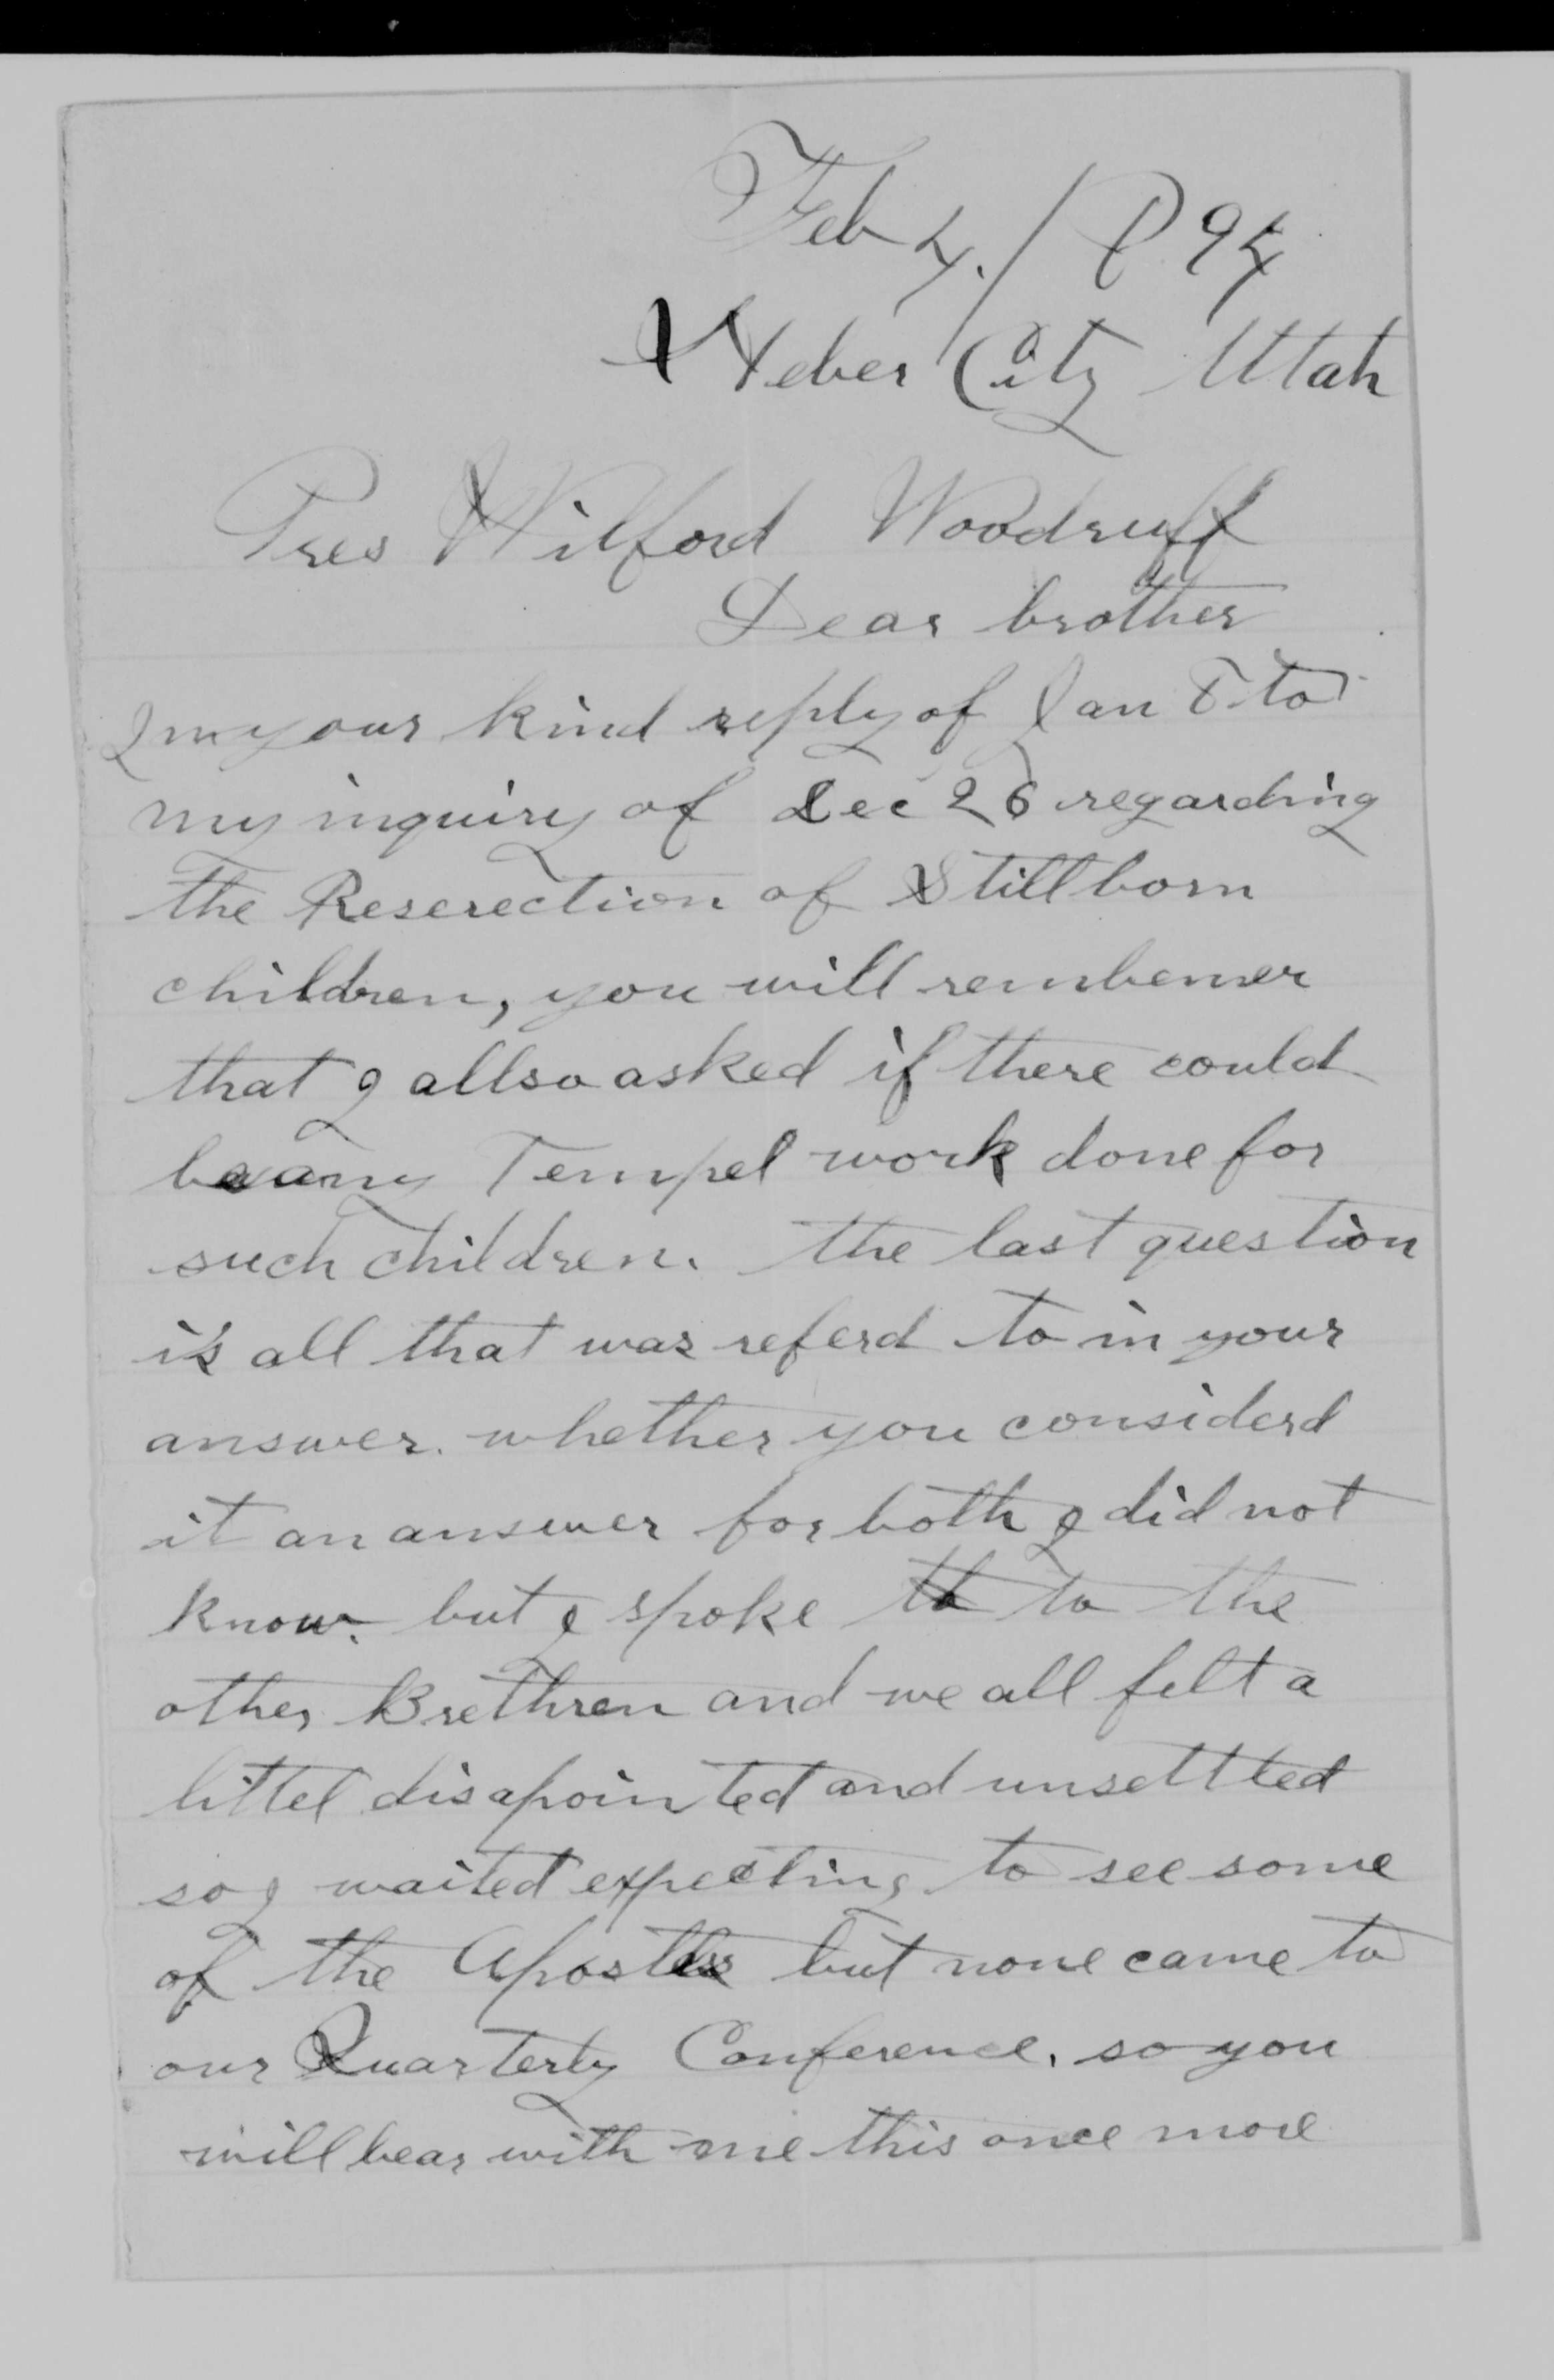 Feb 4. / 894
Heber City Utah
Pres Wilford Woodruff
Dear brother
In your kind reply of Jan 8 to
my inquiry of Dec 26 regarding
the Reserection of Stillborn
children, you will rembemer
that I allso asked if there could
be any Tempel work done for
such children. the last question
is all that was referd to in your
answer. whether you considerd
it an answer for both I did not
know. but I spoke to to the
other Brethren and we all felt a
littel disapointed and unsettled
so I waited expecting to see some
of the Apostles but none came to
our Quarterly Conference. so you
will bear with me this once more